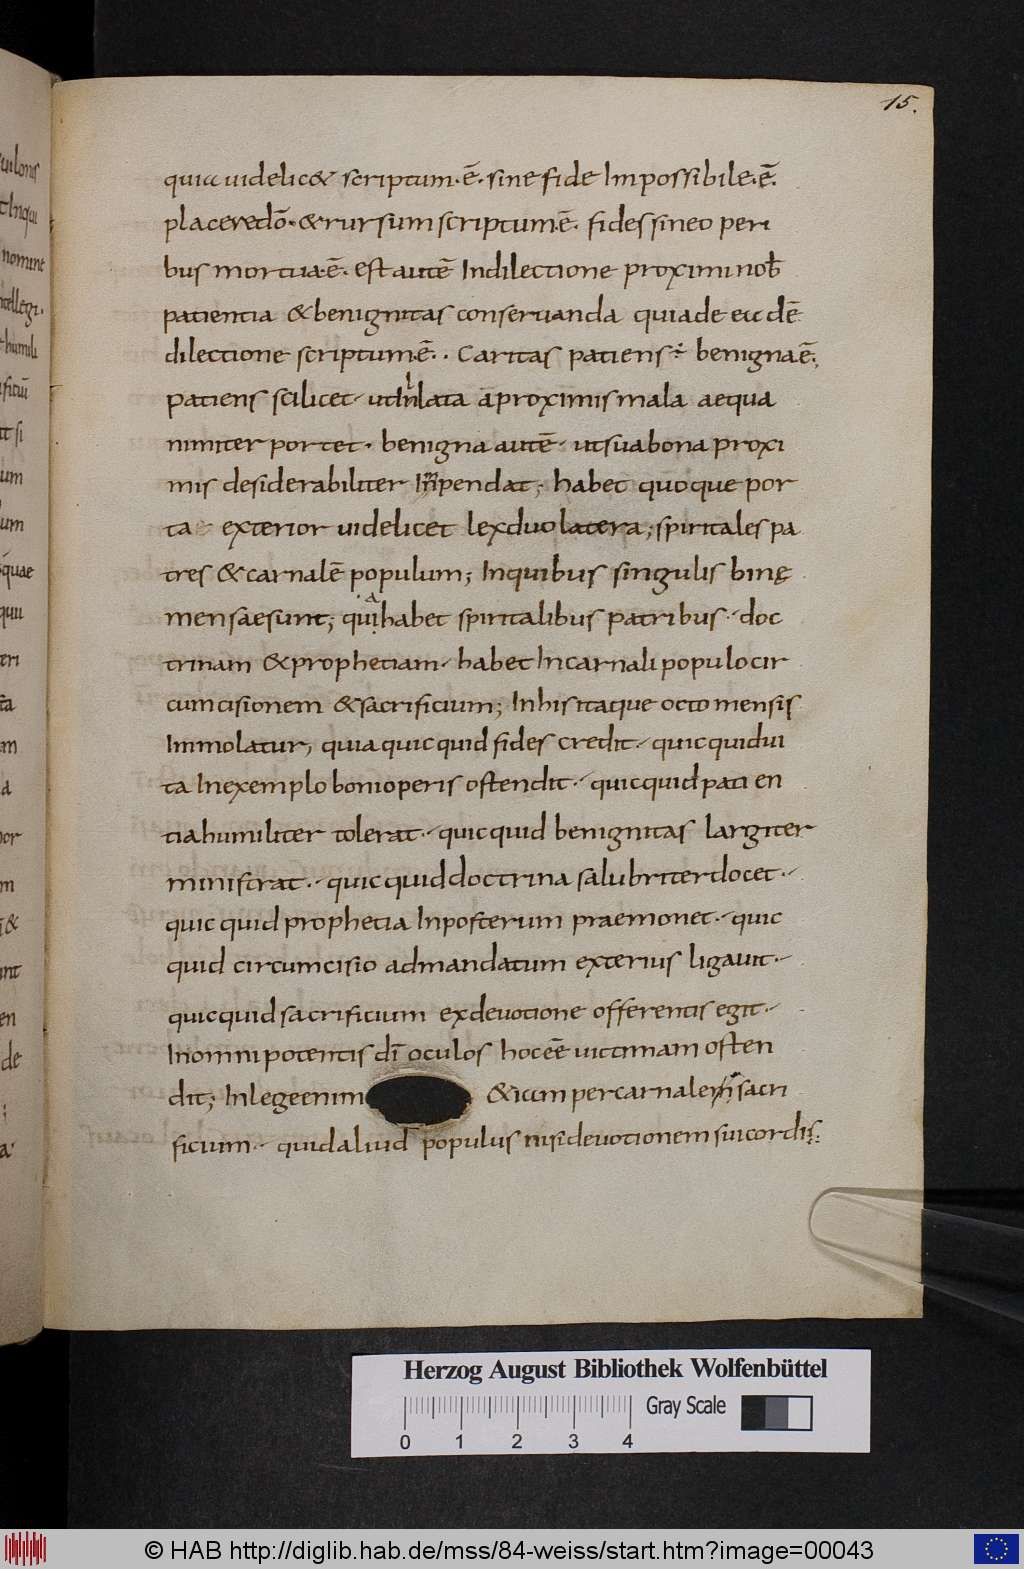 15.
quia uidelic& scriptum·ē· sine fide Impossibile·ē·
placere dō· & rursum scriptum ē· fides sine operi
bus mortua·ē· est autē In dilectione proximi nob̄
patientia & benignitas conseruanda quia de eadē
dilectione scriptum·ē·. Caritas patiens ÷ benigna ē·,
patiens scilicet· ut inlata ā proximis mala aequa
nimiter portet· benigna autē· ut sua bona proxi
mis desiderabiliter Impendat; habet quoque por
ta exterior uidelicet lex duo latera; spiritales pa
tres & carnalē populum; In quibus singulis binę
mensae sunt; quia habet spiritalibus patribus· doc
trinam & prophetiam· habet In carnali populo cir
cumcisionem & sacrificium; In his itaque octo mensis
Immolatur, quia quicquid fides credit· quicquid ui
ta In exemplo boni operis ostendit· quicquid patien
tia humiliter tolerat· quicquid benignitas largiter
ministrat· quicquid doctrina salubriter docet·
quicquid prophetia In posterum praemonet· quic
quid circumcisio ad mandatum exterius ligauit·
quicquid sacrificium ex deuotione offerentis egit·
In omnipotentis dī oculos hoc eē uictimam osten
dit; In lege enim & iam per carnalem sacri
ficium· quid aliud populus nisi deuotionem sui cordis
Herzog August Bibliothek Wolfenbüttel
Gray Scale
0 1 2 3 4
© HAB http://diglib.hab.de/mss/84-weiss/start.htm?image=00043